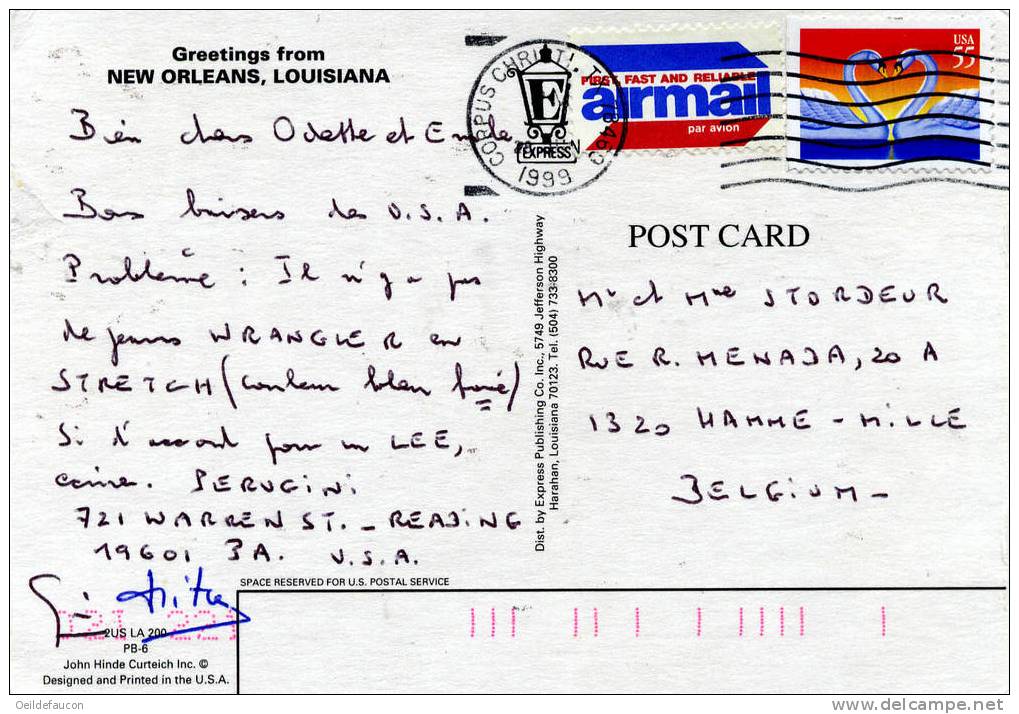 Greetings from
NEW ORLEANS, LOUISIANA
Bien chers Odette et Emile
Bons baisers des U.S.A.
Problème : Il n'y a pas
de jeans WRANGLER en
STRETCH (couleur bleu foncé)
Si d'accord pour un LEE,
écrire. PERUGINI
721 WARREN ST. - READING
19601 PA. U.S.A.
CORPUS CHRISTI, TX 78469
1999
E
EXPRESS
FIRST, FAST AND RELIABLE
airmail
par avion
USA
55
POST CARD
Mr et Mme STORDEUR
RUE R. MENADA, 20 A
1320 HAMME - MILLE
BELGIUM -
Dist. by Express Publishing Co. Inc., 5749 Jefferson Highway
Harahan, Louisiana 70123. Tel. (504) 733-8300
SPACE RESERVED FOR U.S. POSTAL SERVICE
2US LA 200
PB-6
John Hinde Curteich Inc. ©
Designed and Printed in the U.S.A.
Oeildefaucon
delcampe.net